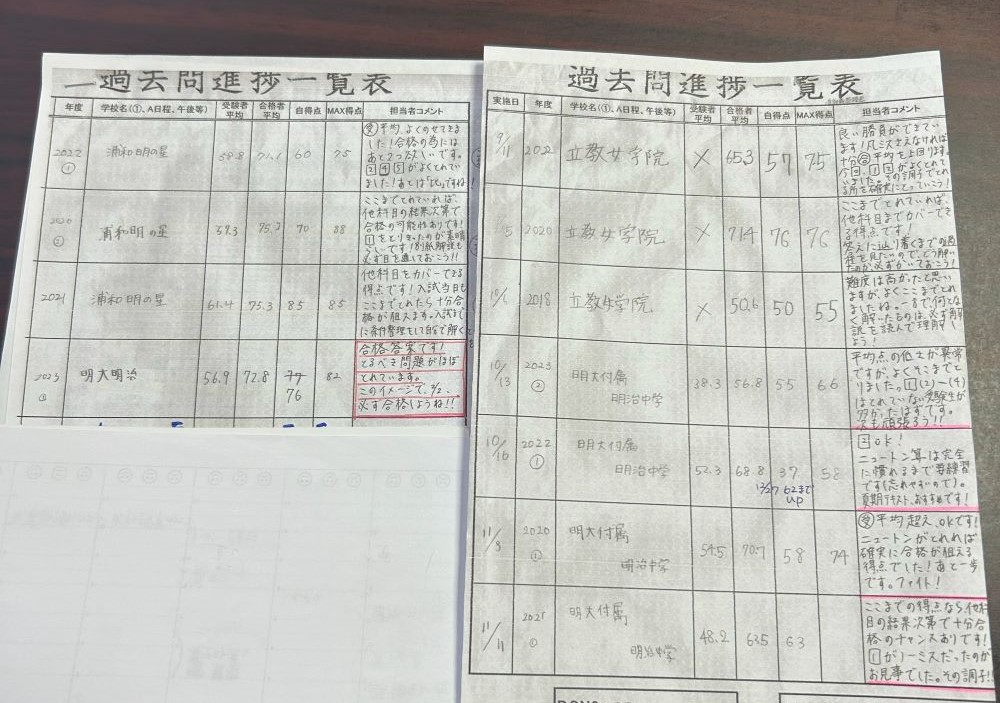 過去問進捗一覧表
年度 学校名(①、A日程、午後等) 受験者平均 合格者平均 自得点 MAX得点 担当者コメント
2022 ① 浦和明の星 58.8 71.1 60 75
㊤平均、よくのせてきま
した!合格の為には
あと2つ欲しいです。
2 4 5 がよくとれて
いました!あとは「比」ですね!
2020 ② 浦和明の星 59.3 75.2 70 88
ここまでとれていれば、
他科目の結果次第で
合格の可能性あります!
必ず目を通しておこう!!
2021 浦和明の星 61.4 75.3 85 85
他科目をカバーできる
得点です!入試当日も
ここまでとれたら十分合
格が狙えます。入試まで
に条件整理を
2023 ① 明大明治 56.9 72.8 77 76 82
合格答案です!
とるべき問題がほぼ
とれています。
このイメージで、2/2、
必ず合格しようね!!
過去問進捗一覧表
実施日 年度 学校名(①、A日程、午後等) 受験者平均 合格者平均 自得点 MAX得点 担当者コメント
9/11 2022 立教女学院 × 65.3 57 75
良い勝負ができてい
ます!凡ミスさえなければ
十分㊝平均を上回ります。
いました。その調子でとれ
る所を確実にとっていこう!
2020 立教女学院 × 71.4 76 76
ここまでとれていれば、
他科目までカバーでき
る得点です!
答えに辿り着くまでの過
程を見たいので、どう解い
たのか必ずかいておこう!
2018 立教女学院 × 50.6 50 55
難度は高かったと思い
ますが、よくここまでとれ
ましたね。一8で何とな
く解いたものは、必ず解
説を読んで理解し
よう!
10/13 2023 ② 明大付属 明治中学 38.3 56.8 55 66
平均点の低さが異常
ですが、よくそこまでと
りました。1(2)〜(4)
はとれていない受験生が
多かったはずです。
次も頑張ろう!!
10/16 2022 ① 明大付属 明治中学 52.3 68.8 37 58
12/27 62まで
up
2 OK!
ニュートン算は完全
に慣れるまで要練習
です(忘れやすいので)。
夏期テキスト、おすすめです!
11/3 2020 ① 明大付属 明治中学 54.5 70.7 58 74
㊤平均超え、OKです!
ニュートンがとれれば
確実に合格が狙える
得点でした!あと一歩
です。ファイト!
11/11 2021 ① 明大付属 明治中学 48.2 63.5 63
ここまでの得点なら他科
目の結果次第で十分合
格のチャンスありです!
1がノーミスだったのが
お見事でした。その調子!!